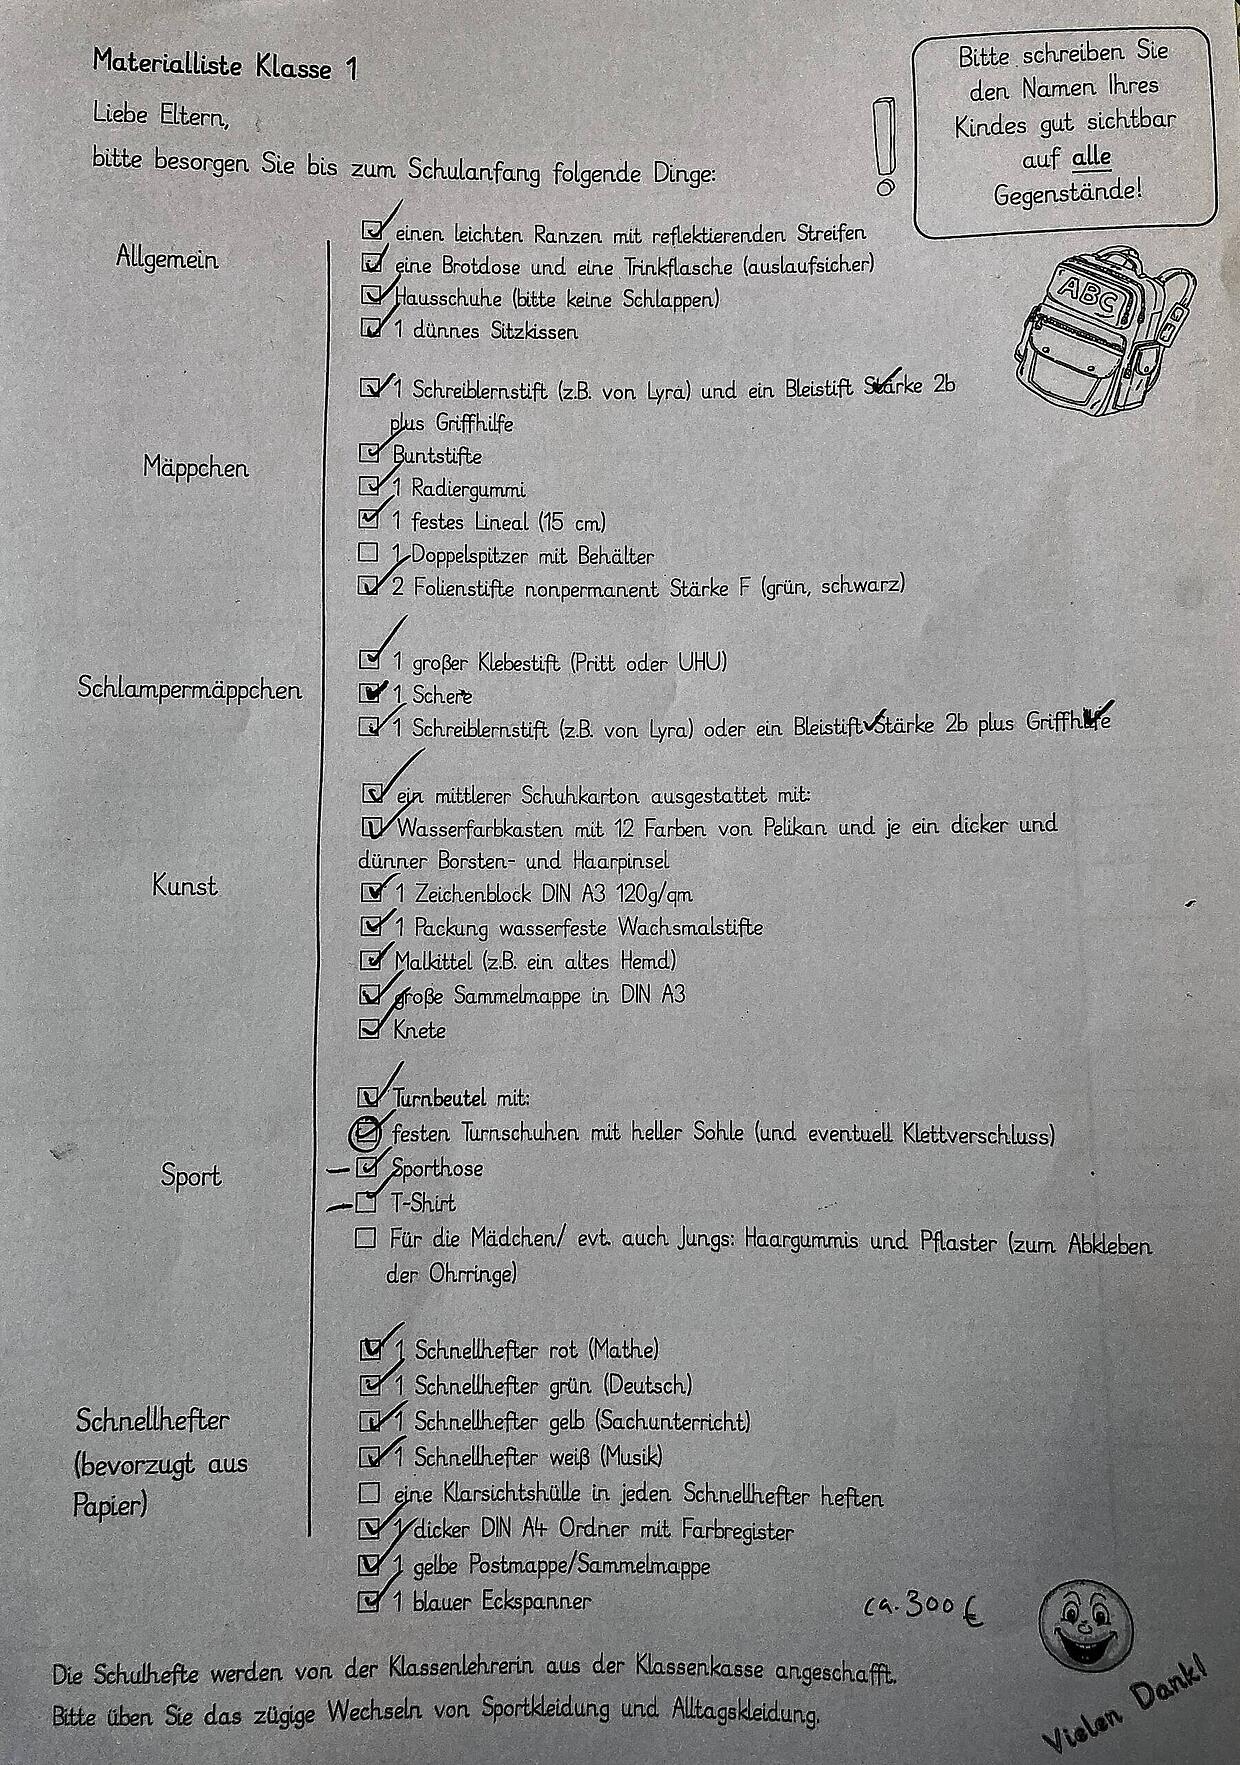 Materialliste Klasse 1
Liebe Eltern,
bitte besorgen Sie bis zum Schulanfang folgende Dinge:
Bitte schreiben Sie
den Namen Ihres
Kindes gut sichtbar
auf alle
Gegenstände!
ABC
Allgemein
einen leichten Ranzen mit reflektierenden Streifen
eine Brotdose und eine Trinkflasche (auslaufsicher)
Hausschuhe (bitte keine Schlappen)
1 dünnes Sitzkissen
Mäppchen
1 Schreiblernstift (z.B. von Lyra) und ein Bleistift Stärke 2b
plus Griffhilfe
Buntstifte
1 Radiergummi
1 festes Lineal (15 cm)
1 Doppelspitzer mit Behälter
2 Folienstifte nonpermanent Stärke F (grün, schwarz)
Schlampermäppchen
1 großer Klebestift (Pritt oder UHU)
1 Schere
1 Schreiblernstift (z.B. von Lyra) oder ein Bleistift Stärke 2b plus Griffhilfe
Kunst
ein mittlerer Schuhkarton ausgestattet mit:
Wasserfarbkasten mit 12 Farben von Pelikan und je ein dicker und
dünner Borsten- und Haarpinsel
1 Zeichenblock DIN A3 120g/qm
1 Packung wasserfeste Wachsmalstifte
Malkittel (z.B. ein altes Hemd)
große Sammelmappe in DIN A3
Knete
Sport
Turnbeutel mit:
festen Turnschuhen mit heller Sohle (und eventuell Klettverschluss)
Sporthose
T-Shirt
Für die Mädchen/ evt. auch Jungs: Haargummis und Pflaster (zum Abkleben
der Ohrringe)
Schnellhefter
(bevorzugt aus
Papier)
1 Schnellhefter rot (Mathe)
1 Schnellhefter grün (Deutsch)
1 Schnellhefter gelb (Sachunterricht)
1 Schnellhefter weiß (Musik)
eine Klarsichtshülle in jeden Schnellhefter heften
1 dicker DIN A4 Ordner mit Farbregister
1 gelbe Postmappe/Sammelmappe
1 blauer Eckspanner
ca. 300 €
Die Schulhefte werden von der Klassenlehrerin aus der Klassenkasse angeschafft.
Bitte üben Sie das zügige Wechseln von Sportkleidung und Alltagskleidung.
Vielen Dank!